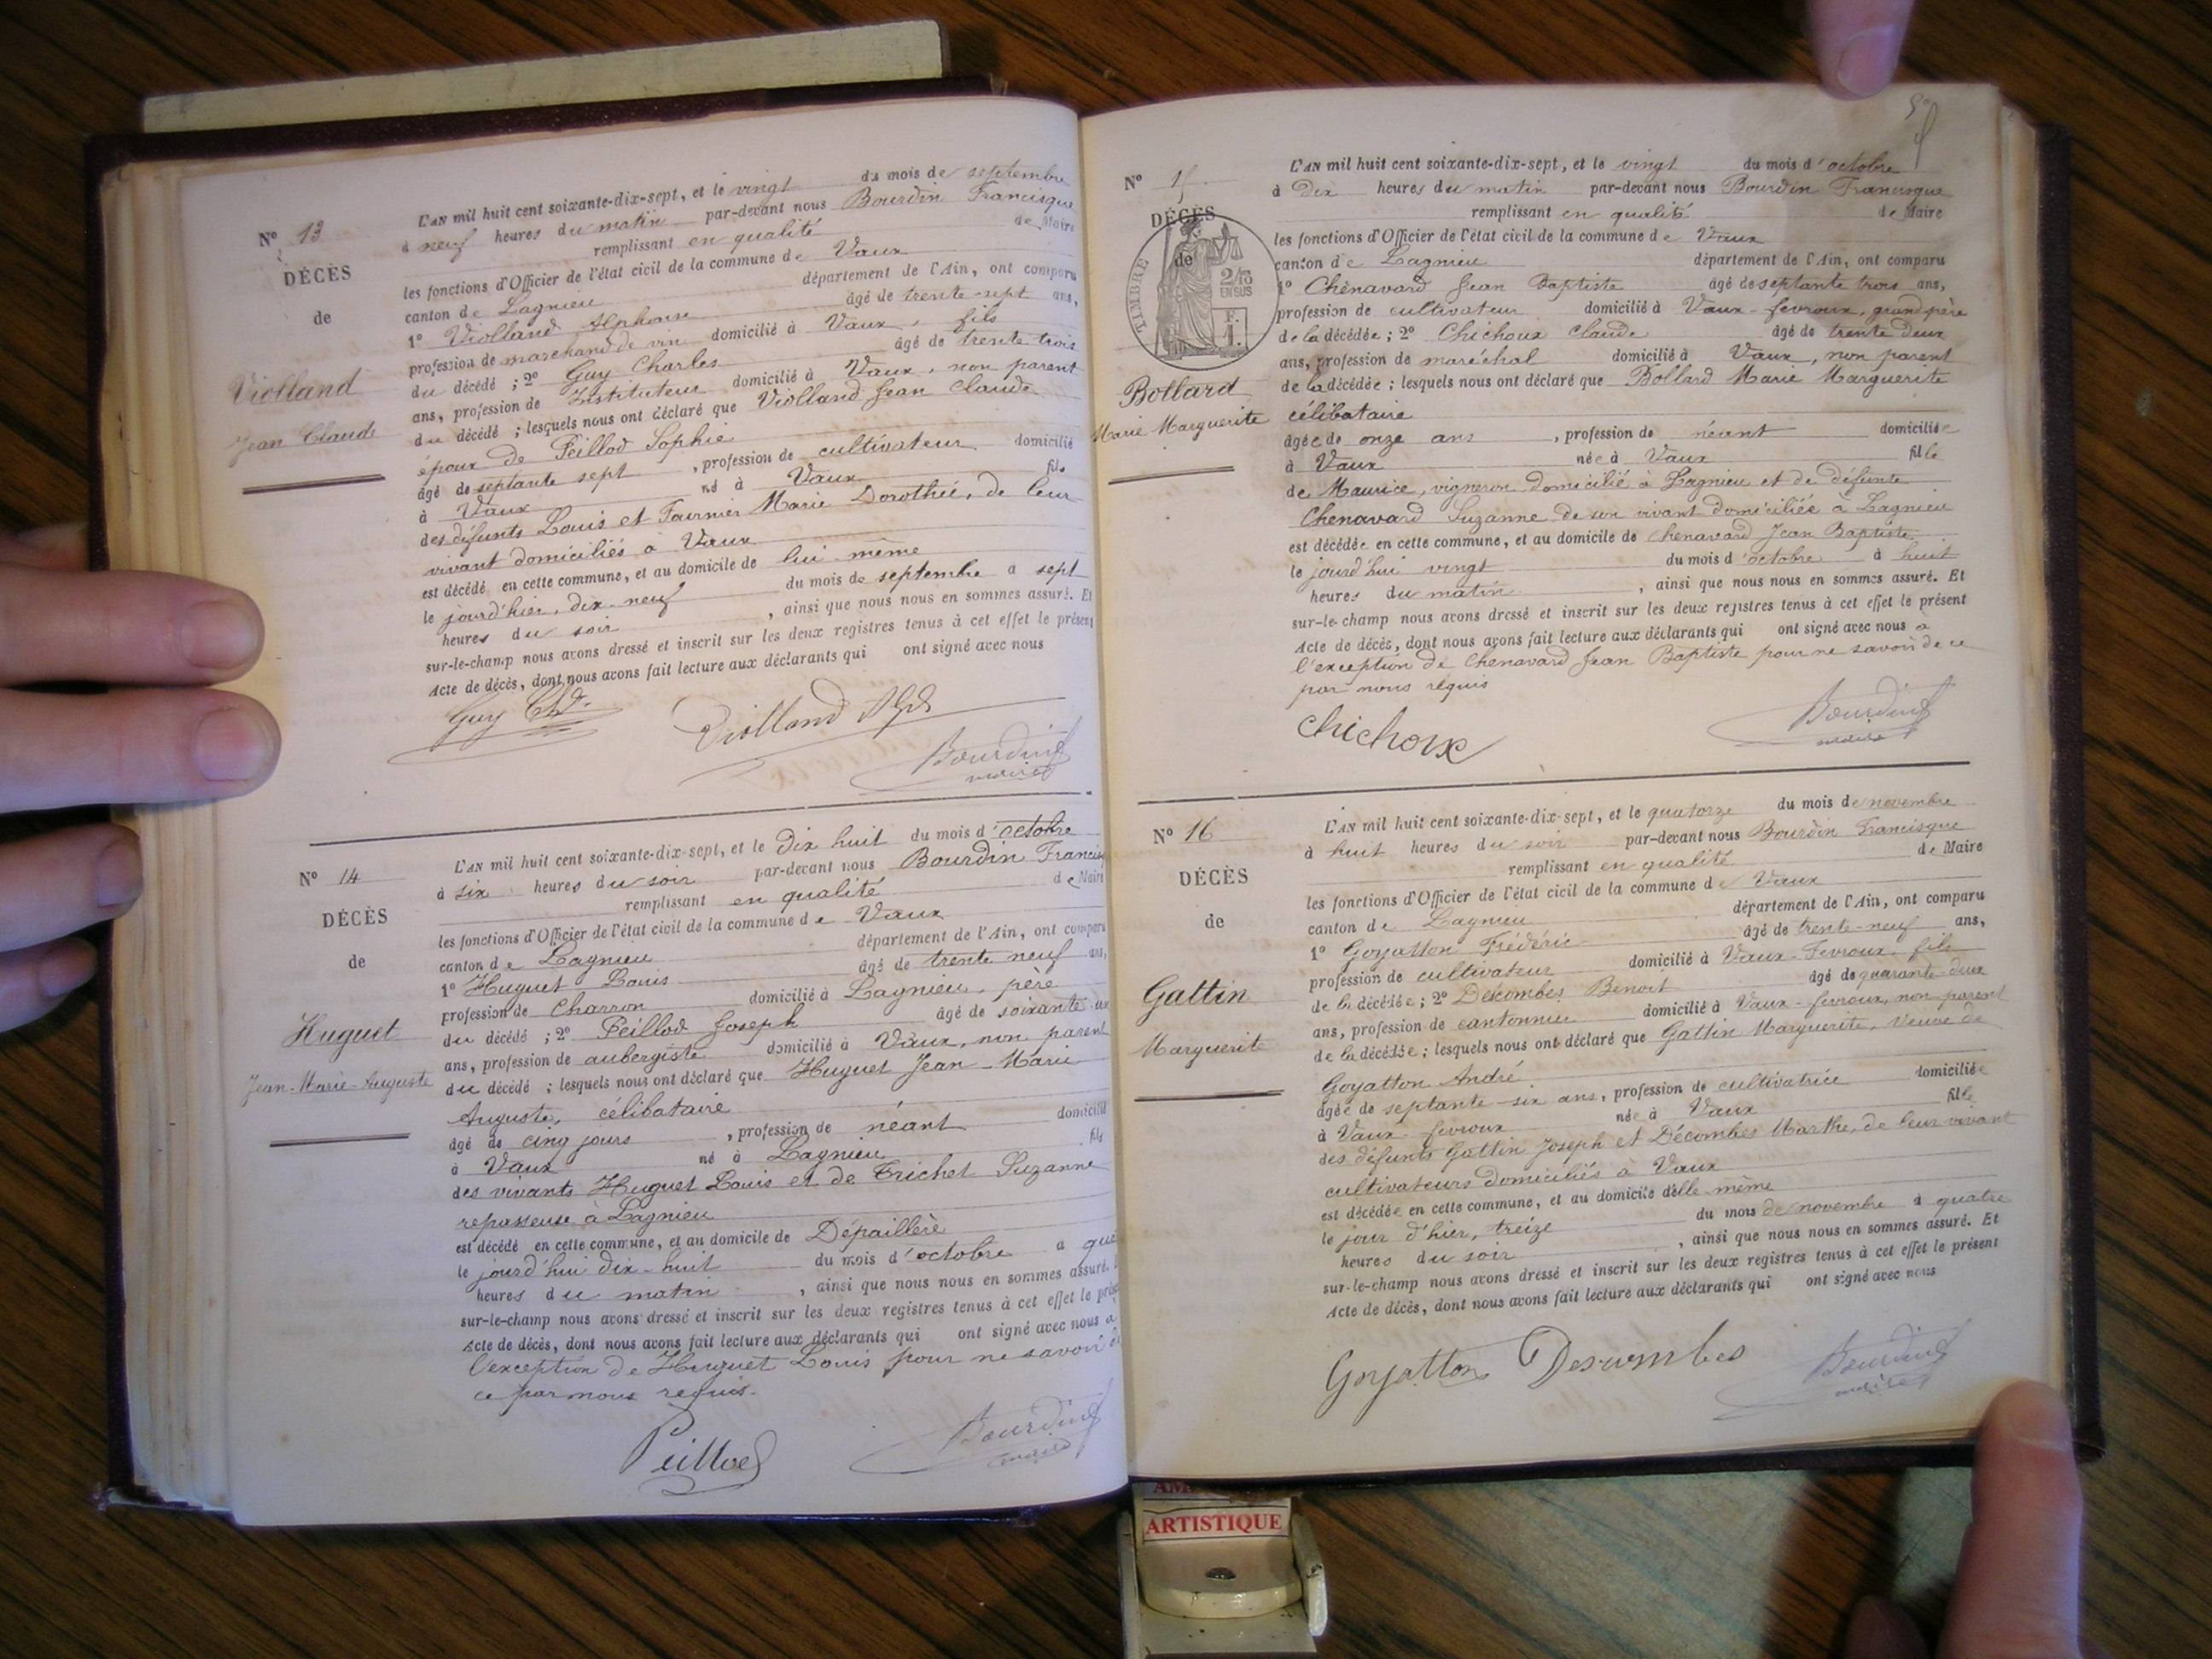 Nº 13
DÉCÈS
de
Violland
Jean Claude
L'AN mil huit cent soixante-dix-sept, et le vingt du mois de septembre
à neuf heures du matin par-devant nous Bourdin Francisque
remplissant en qualité de Maire
les fonctions d'Officier de l'état civil de la commune de Vaux
canton de Lagnieu département de l'Ain, ont comparu
1º Violland Alphonse âgé de trente-sept ans,
profession de marchand de vin domicilié à Vaux, fils
du décédé ; 2º Guy Charles âgé de trente trois
ans, profession de Instituteur domicilié à Vaux, non parent
du décédé ; lesquels nous ont déclaré que Violland Jean Claude
époux de Peillod Sophie
âgé de septante sept , profession de cultivateur domicilié
à Vaux né à Vaux fils
des défunts Louis et Fournier Marie Dorothée, de leur
vivant domiciliés à Vaux
est décédé en cette commune, et au domicile de lui même
le jourd'hier, dix-neuf du mois de septembre à sept
heures du soir , ainsi que nous nous en sommes assuré. Et
sur-le-champ nous avons dressé et inscrit sur les deux registres tenus à cet effet le présent
Acte de décès, dont nous avons fait lecture aux déclarants qui ont signé avec nous
Guy Ch.
Violland Alph
Bourdin
maire
Nº 14
DÉCÈS
de
Huguet
Jean-Marie-Auguste
L'AN mil huit cent soixante-dix-sept, et le Dix huit du mois d'octobre
à six heures du soir par-devant nous Bourdin Francis
remplissant en qualité de Maire
les fonctions d'Officier de l'état civil de la commune de Vaux
canton de Lagnieu département de l'Ain, ont comparu
1º Huguet Louis âgé de trente neuf ans,
profession de Charron domicilié à Lagnieu, père
du décédé ; 2º Peillod Joseph âgé de soixante un
ans, profession de aubergiste domicilié à Vaux, non parent
du décédé ; lesquels nous ont déclaré que Huguet Jean-Marie
Auguste, célibataire
âgé de cinq jours , profession de néant domicilié
à Vaux né à Lagnieu fils
des vivants Huguet Louis et de Trichet Suzanne
repasseuse à Lagnieu
est décédé en cette commune, et au domicile de Dépaillère
le jourd'hui dix-huit du mois d'octobre à qua
heures du matin , ainsi que nous nous en sommes assuré.
sur-le-champ nous avons dressé et inscrit sur les deux registres tenus à cet effet le prés
Acte de décès, dont nous avons fait lecture aux déclarants qui ont signé avec nous à
l'exception de Huguet Louis pour ne savoir de
ce par nous requis.
Peillod
Bourdin
maire
Nº 15
DÉCÈS
de
TIMBRE
2/10
EN SUS
F.
1.
Bollard
Marie Marguerite
L'AN mil huit cent soixante-dix-sept, et le vingt du mois d'octobre
à Dix heures du matin par-devant nous Bourdin Francisque
remplissant en qualité de Maire
les fonctions d'Officier de l'état civil de la commune de Vaux
canton de Lagnieu département de l'Ain, ont comparu
1º Chenavard Jean Baptiste âgé de septante trois ans,
profession de cultivateur domicilié à Vaux-fevroux, grand père
de la décédée ; 2º Chichoux Claude âgé de trente deux
ans, profession de maréchal domicilié à Vaux, non parent
de la décédée ; lesquels nous ont déclaré que Bollard Marie Marguerite
célibataire
âgée de onze ans , profession de néant domiciliée
à Vaux née à Vaux fille
de Maurice, vigneron domicilié à Lagnieu et de défunte
Chenavard Suzanne de son vivant domiciliée à Lagnieu
est décédée en cette commune, et au domicile de Chenavard Jean Baptiste
le jourd'hui vingt du mois d'octobre à huit
heures du matin , ainsi que nous nous en sommes assuré. Et
sur-le-champ nous avons dressé et inscrit sur les deux registres tenus à cet effet le présent
Acte de décès, dont nous avons fait lecture aux déclarants qui ont signé avec nous à
l'exception de Chenavard Jean Baptiste pour ne savoir de ce
par nous requis
Chichoux
Bourdin
maire
Nº 16
DÉCÈS
de
Gattin
Marguerite
L'AN mil huit cent soixante-dix-sept, et le quatorze du mois de novembre
à huit heures du soir par-devant nous Bourdin Francisque
remplissant en qualité de Maire
les fonctions d'Officier de l'état civil de la commune de Vaux
canton de Lagnieu département de l'Ain, ont comparu
1º Goyatton Frédéric âgé de trente-neuf ans,
profession de cultivateur domicilié à Vaux-Fevroux, fils
de la décédée ; 2º Descombes Benoit âgé de quarante-deux
ans, profession de cantonnier domicilié à Vaux-fevroux, non parent
de la décédée ; lesquels nous ont déclaré que Gattin Marguerite, Veuve de
Goyatton André
âgée de septante-six ans, profession de cultivatrice domiciliée
à Vaux fevroux née à Vaux fille
des défunts Gattin Joseph et Décombes Marthe, de leur vivant
cultivateurs domiciliés à Vaux
est décédée en cette commune, et au domicile d'elle-même
le jour d'hier, treize du mois de novembre à quatre
heures du soir , ainsi que nous nous en sommes assuré. Et
sur-le-champ nous avons dressé et inscrit sur les deux registres tenus à cet effet le présent
Acte de décès, dont nous avons fait lecture aux déclarants qui ont signé avec nous
Goyatton
Descombes
Bourdin
maire
ARTISTIQUE